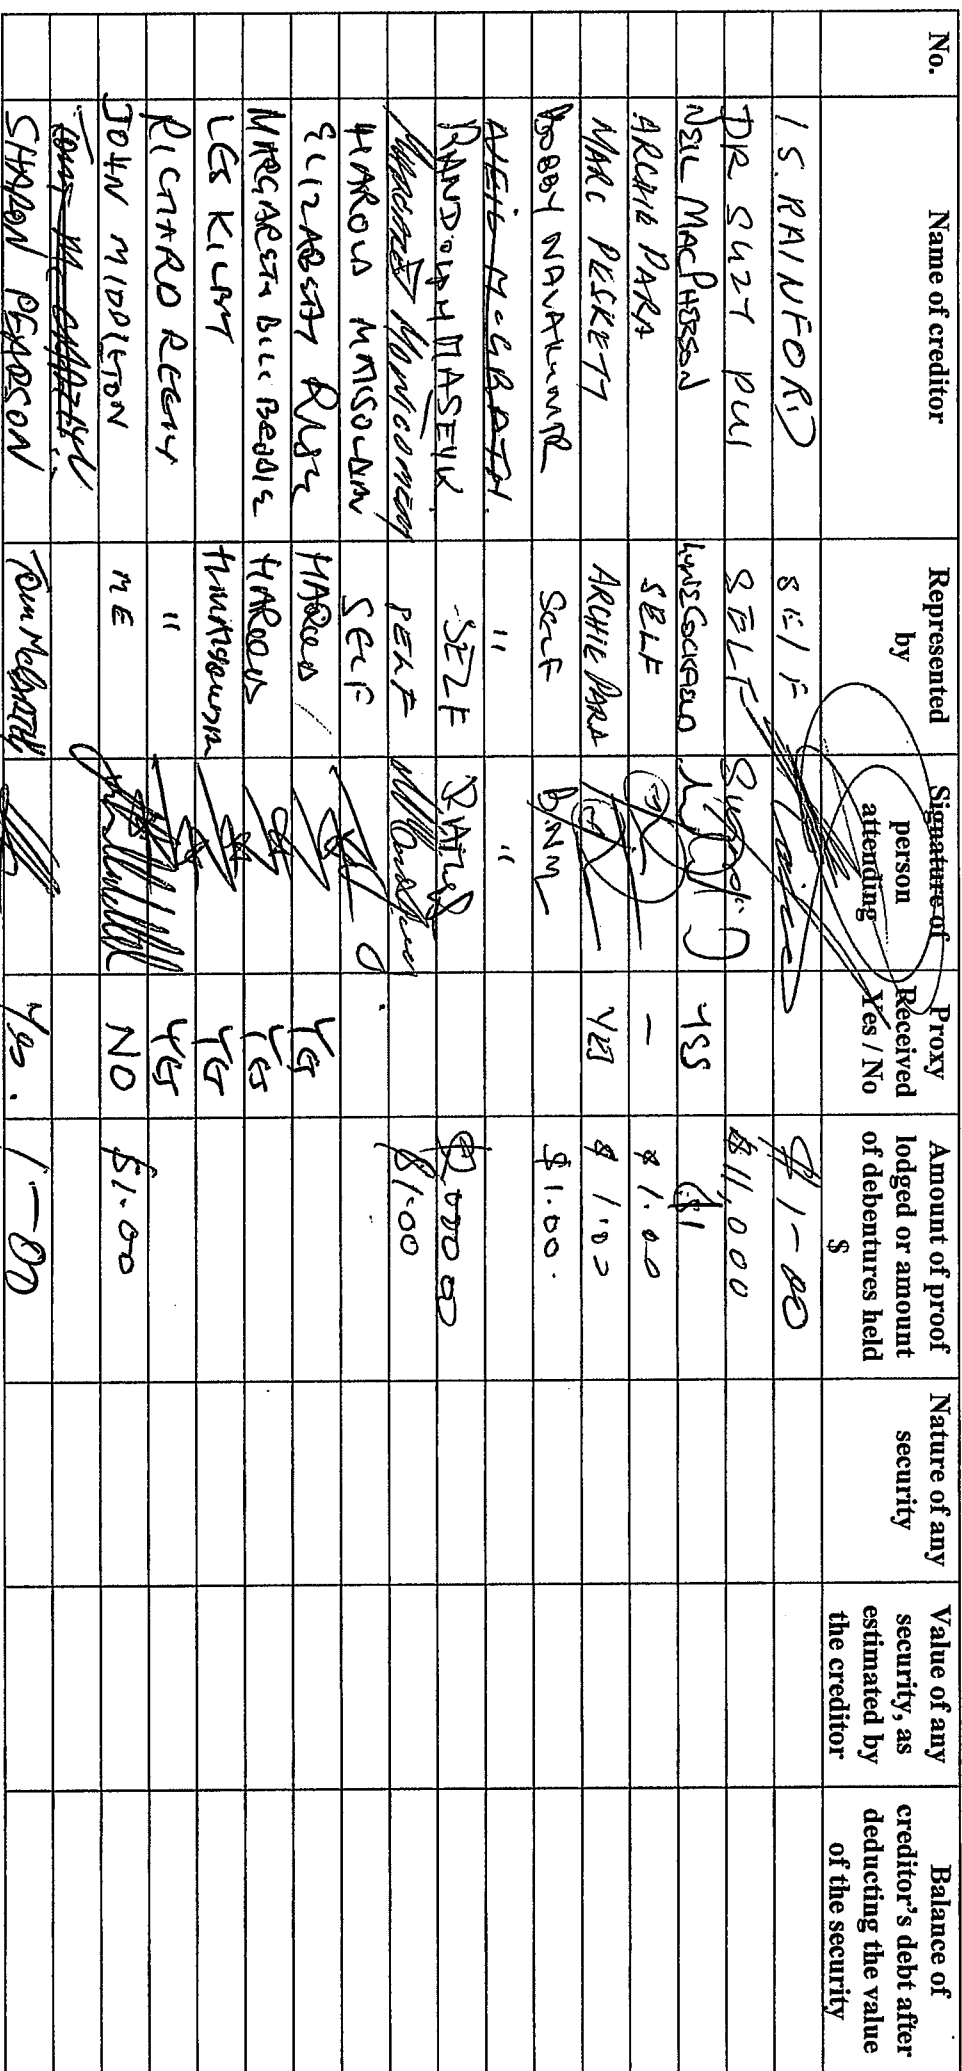 No.
Name of creditor
Represented
by
Signature of
person
attending
Proxy
Received
Yes / No
Amount of proof
lodged or amount
of debentures held
$
Nature of any
security
Value of any
security, as
estimated by
the creditor
Balance of
creditor's debt after
deducting the value
of the security
I S. RAINFORD SELF $1-00
DR SUZY PUI SELF $11,000
NEIL MACPHERSON YES $1
ARCHIE PARA SELF - $1.00
MARC PESKETT ARCHIE PARA YES $1.00
BOBBY NAVAKUMAR SELF B.N.M $1.00.
MCGRATH. " "
RANDOLPH MASEYK SELF
MONTGOMERY SELF $1.00
HAROLD SELF
ELIZABETH HAROLD YES
MARGARETA BILL BEDDIE HAROLD YES
LES KILMT YES
RICHARD REGHY " YES
JOHN MIDDLETON ME NO $1.00
SHARON PEARSON TOM MCGRATH Yes. 1-00